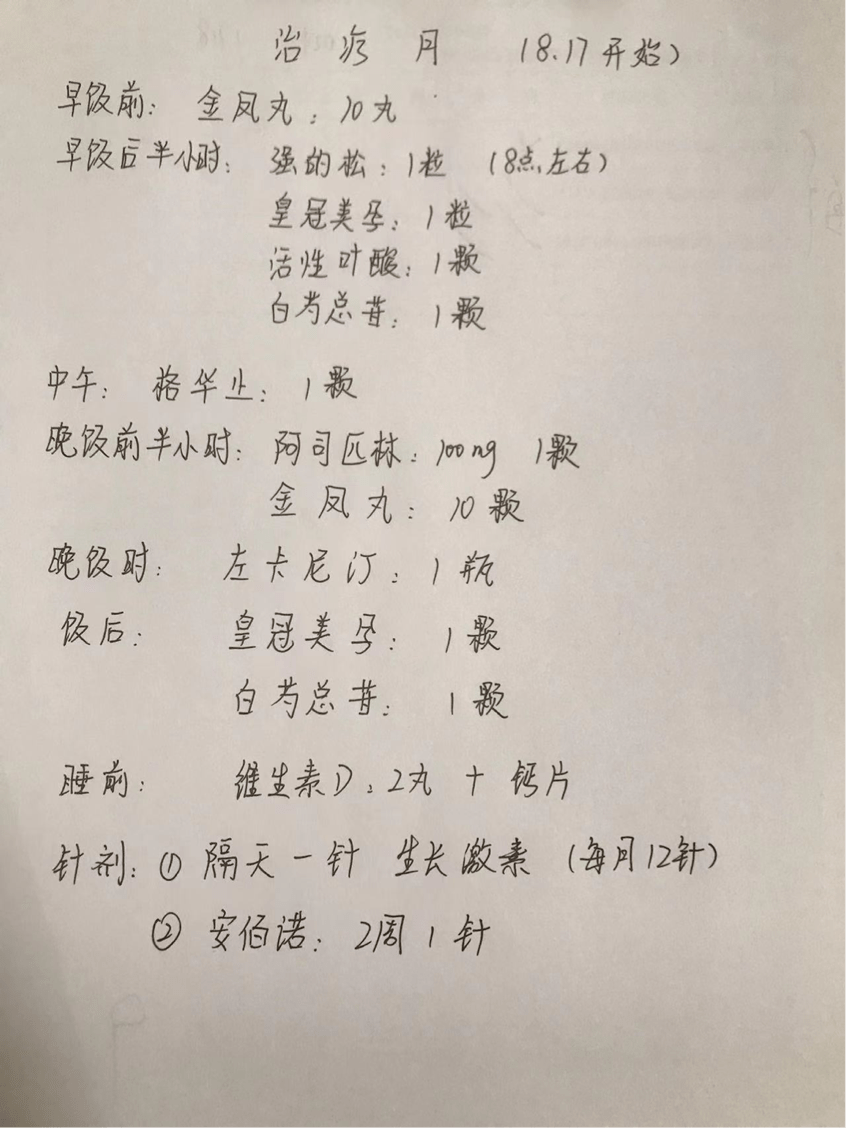 治疗月 (8.17开始)
早饭前: 金凤丸: 10丸
早饭后半小时: 强的松: 1粒 (8点左右)
皇冠美孕: 1粒
活性叶酸: 1颗
白芍总苷: 1颗
中午: 格华止: 1颗
晚饭前半小时: 阿司匹林: 100mg 1颗
金凤丸: 10颗
晚饭时: 左卡尼汀: 1瓶
饭后: 皇冠美孕: 1颗
白芍总苷: 1颗
睡前: 维生素D: 2丸 + 钙片
针剂: ① 隔天一针 生长激素 (每月12针)
② 安伯诺: 2周1针